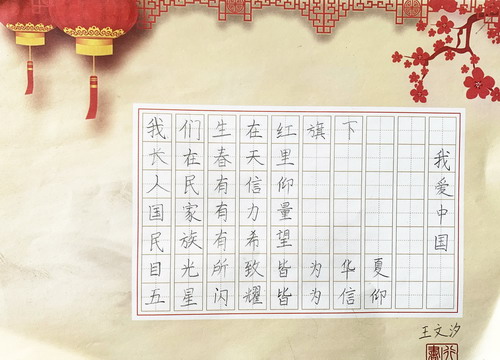 我爱中国
我们生在红旗下
长在春天里
人民有信仰
国家有力量
民族有希望
目光所致皆为华夏
五星闪耀皆为信仰
王文汐